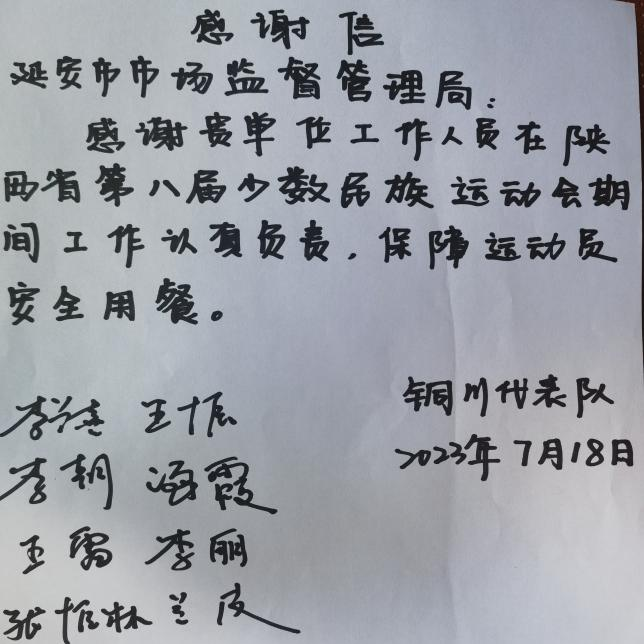 感谢信
延安市市场监督管理局：
感谢贵单位工作人员在陕
西省第八届少数民族运动会期
间工作认真负责，保障运动员
安全用餐。
铜川代表队
2023年7月18日
李 王
李朝 海霞
王 李丽
张 林 兰